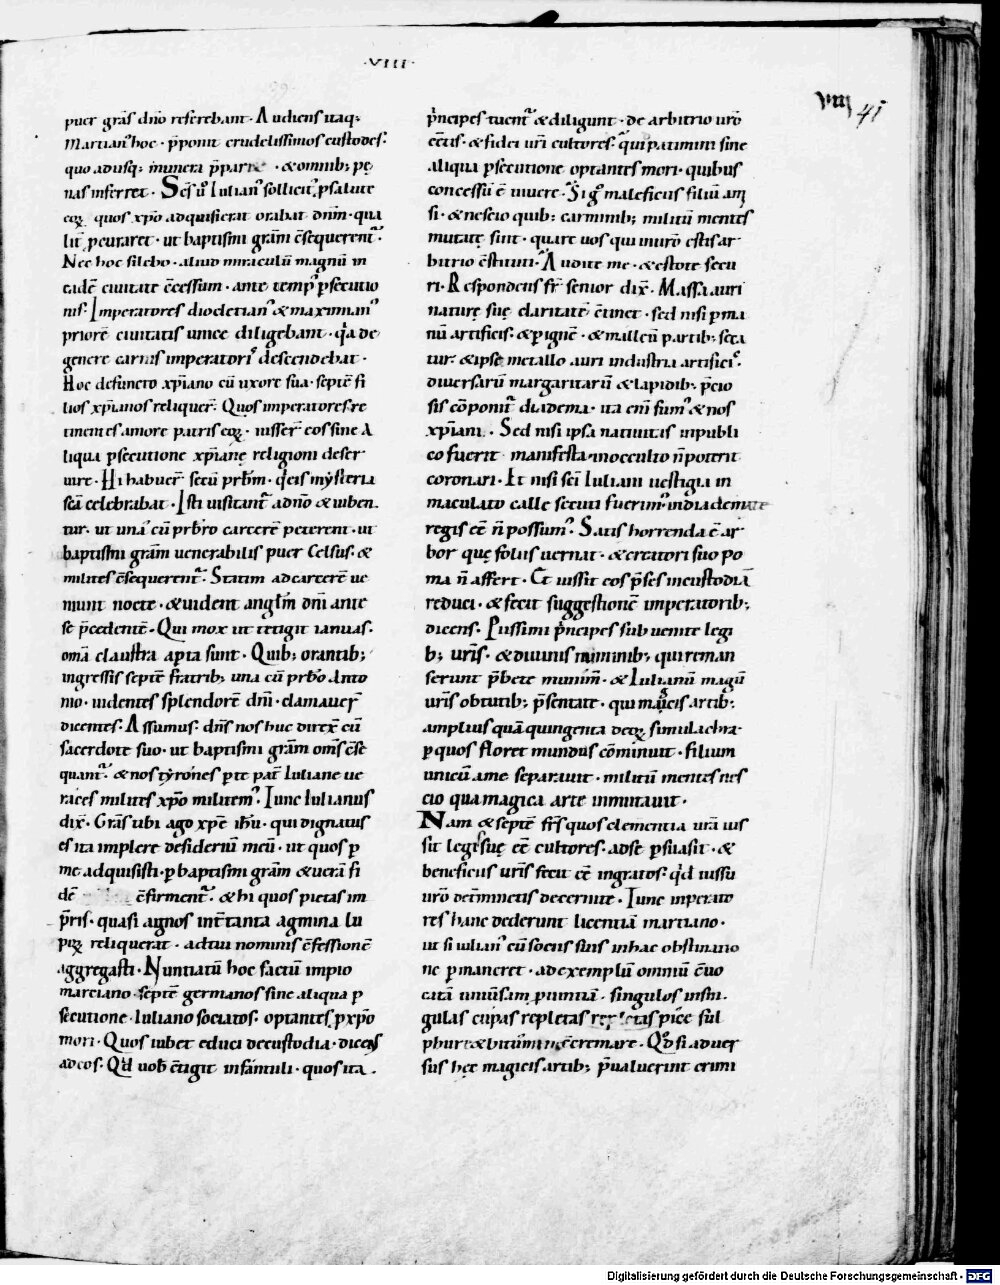 ·VIII·
VIIII 41
puer grās dn̄o referebant· Audiens itaq;
Martian᾿ hoc· p̄ponit crudelissimos custodes·
quo adusq; munera p̄pa · & omnib; pę
nas inferret· Sc̄s u᷎ Iulian᾿ sollicit᾿ p salute
eoꝝ quos xp̄o adquisierat orabat dn̄m· qua
lit̄ pcuraret· ut baptismi gr̄am c̄sequerent᷑·
Nec hoc silebo· aliud miraculū magnū in
eadē ciuitate c̄cessum· ante temp᾿ psecutio
nis· Imperatores diocletian᾿ & maximian᾿
priorē ciuitatis unice diligebant· q̇a de
genere carnis imperatori᾿ descendebat·
Hoc defuncto xp̄iano cū uxore sua· septē fi
lios xp̄ianos reliquer̄· Quos imperatores re
tinentes amore patris eoꝝ· iusser̄ eos sine a
liqua psecutione xp̄ianę religioni deser
uire· Hi habuer̄ secū pr̄bm· q̇ eis mysteria
sc̄a celebrabat· Isti uisitant᷑ a dn̄o & iuben
tur· ut una cū pr̄bro carcerē peterent· ut
baptismi gr̄am uenerabilis puer Celsus· &
milites c̄sequerent᷑· Statim ad carcerē ue
niunt nocte· & uident angl̄m dn̄i ante
se p̄cedentē· Qui mox ut tetigit ianuas·
om̄a claustra apta sunt· Quib; orantib;
ingressis septē fratrib; una cū pr̄bro Anto
nio· uidentes splendorē dn̄i· clamauer̄
dicentes· Assumus· dn̄s nos huc direx̄ cū
sacerdote suo· ut baptismi gr̄am om̄s c̄se
quant᷑· & nos tyrones p te pat̄ Iuliane ue
races milites xp̄o militem᾿· Tunc Iulianus
dix̄· Grās tibi ago xp̄e ih̄u· qui dignatus
es ita implere desideriū meū· ut quos p
me adquisisti· p baptismi gr̄am & uerā fi
dē c̄firment᷑· & hi quos pietas im
p̄ris· quasi agnos int̄ tanta agmina lu
poꝝ reliquerat· ad tui nominis c̄fessionē
aggregasti· Nuntiatū hoc factū impio
marciano· septē germanos sine aliqua p
secutione· Iuliano sociatos· optantes p xp̄o
mori· Quos iubet educi de custodia· dicens
ad eos· Qd̄ uob̄ c̄tigit infantuli· quos ita
p̄ncipes tuent᷑ & diligunt· de arbitrio ur̄o
ēētis· & fidei ur̄i cultores· q᷑ui patimini sine
aliqua psecutione optantes mori· quibus
concessū ē uiuere· Si g᷎ maleficus filiū am̄
si· & nescio quib; carminib; militū mentes
mutatę sint· quare uos qui in ur̄o estis ar
bitrio c̄stituti· Audite me· & estote secu
ri· Respondens fr̄ senior dix̄· Massa auri
naturę suę claritatē c̄tinet· sed nisi p ma
nū artificis· & p ignē· & malleū partib; seca
tur· & ipse metallo auri industria artifici᾿·
diuersarū margaritarū & lapidib; p̄cio
sis cōponit᷑ diadema· ita eni fum᾿ & nos
xp̄iani· Sed nisi ipsa natiuitas in publi
co fuerit manifesta· in occulto n̄ poterit
coronari· Et nisi sc̄i Iuliani uestigia in
maculato calle secuti fuerim᾿ in diademate
regis ēē n̄ possum᾿· Satis horrenda ē ar
bor quę folius uernat· & creatori suo po
ma n̄ affert· Et iussit eos p̄ses in custodiā
reduci· & fecit suggestionē imperatorib;
dicens· Piissimi p̄ncipes subuenite legi
b; ur̄is· & diuinis numinib; qui reman
serunt p̄bete munim̄· & Iulianū magū
ur̄is obtutib; p̄sentate· qui magicis artib;
amplius quā quingenta deoꝝ simulachra
p quos floret mundus cōminuit· filium
unicū a me separauit· militū mentes nes
cio qua magica arte inmutauit·
Nam & septē fr̄s quos clementia ur̄a ius
sit legis suę ēē cultores· ad se psuasit· &
beneficiis ur̄is fecit ēē ingratos· qd̄ iussu
ur̄o det̄minetis decernite· Tunc imperato
res hanc dederunt licentiā martiano·
ut si iulian᾿ cū sociis suis in hac obstinatio
ne pmaneret· ad exemplū omniū c̄uo
catā uniūsam puintiā· singulos in sin
gulas cupas repletas repletas pice sul
phure & bitumine c̄cremare· Qd̄ si aduer
sus hęc magicis artib; p̄ualuerint crimi
Digitalisierung gefördert durch die Deutsche Forschungsgemeinschaft · DFG